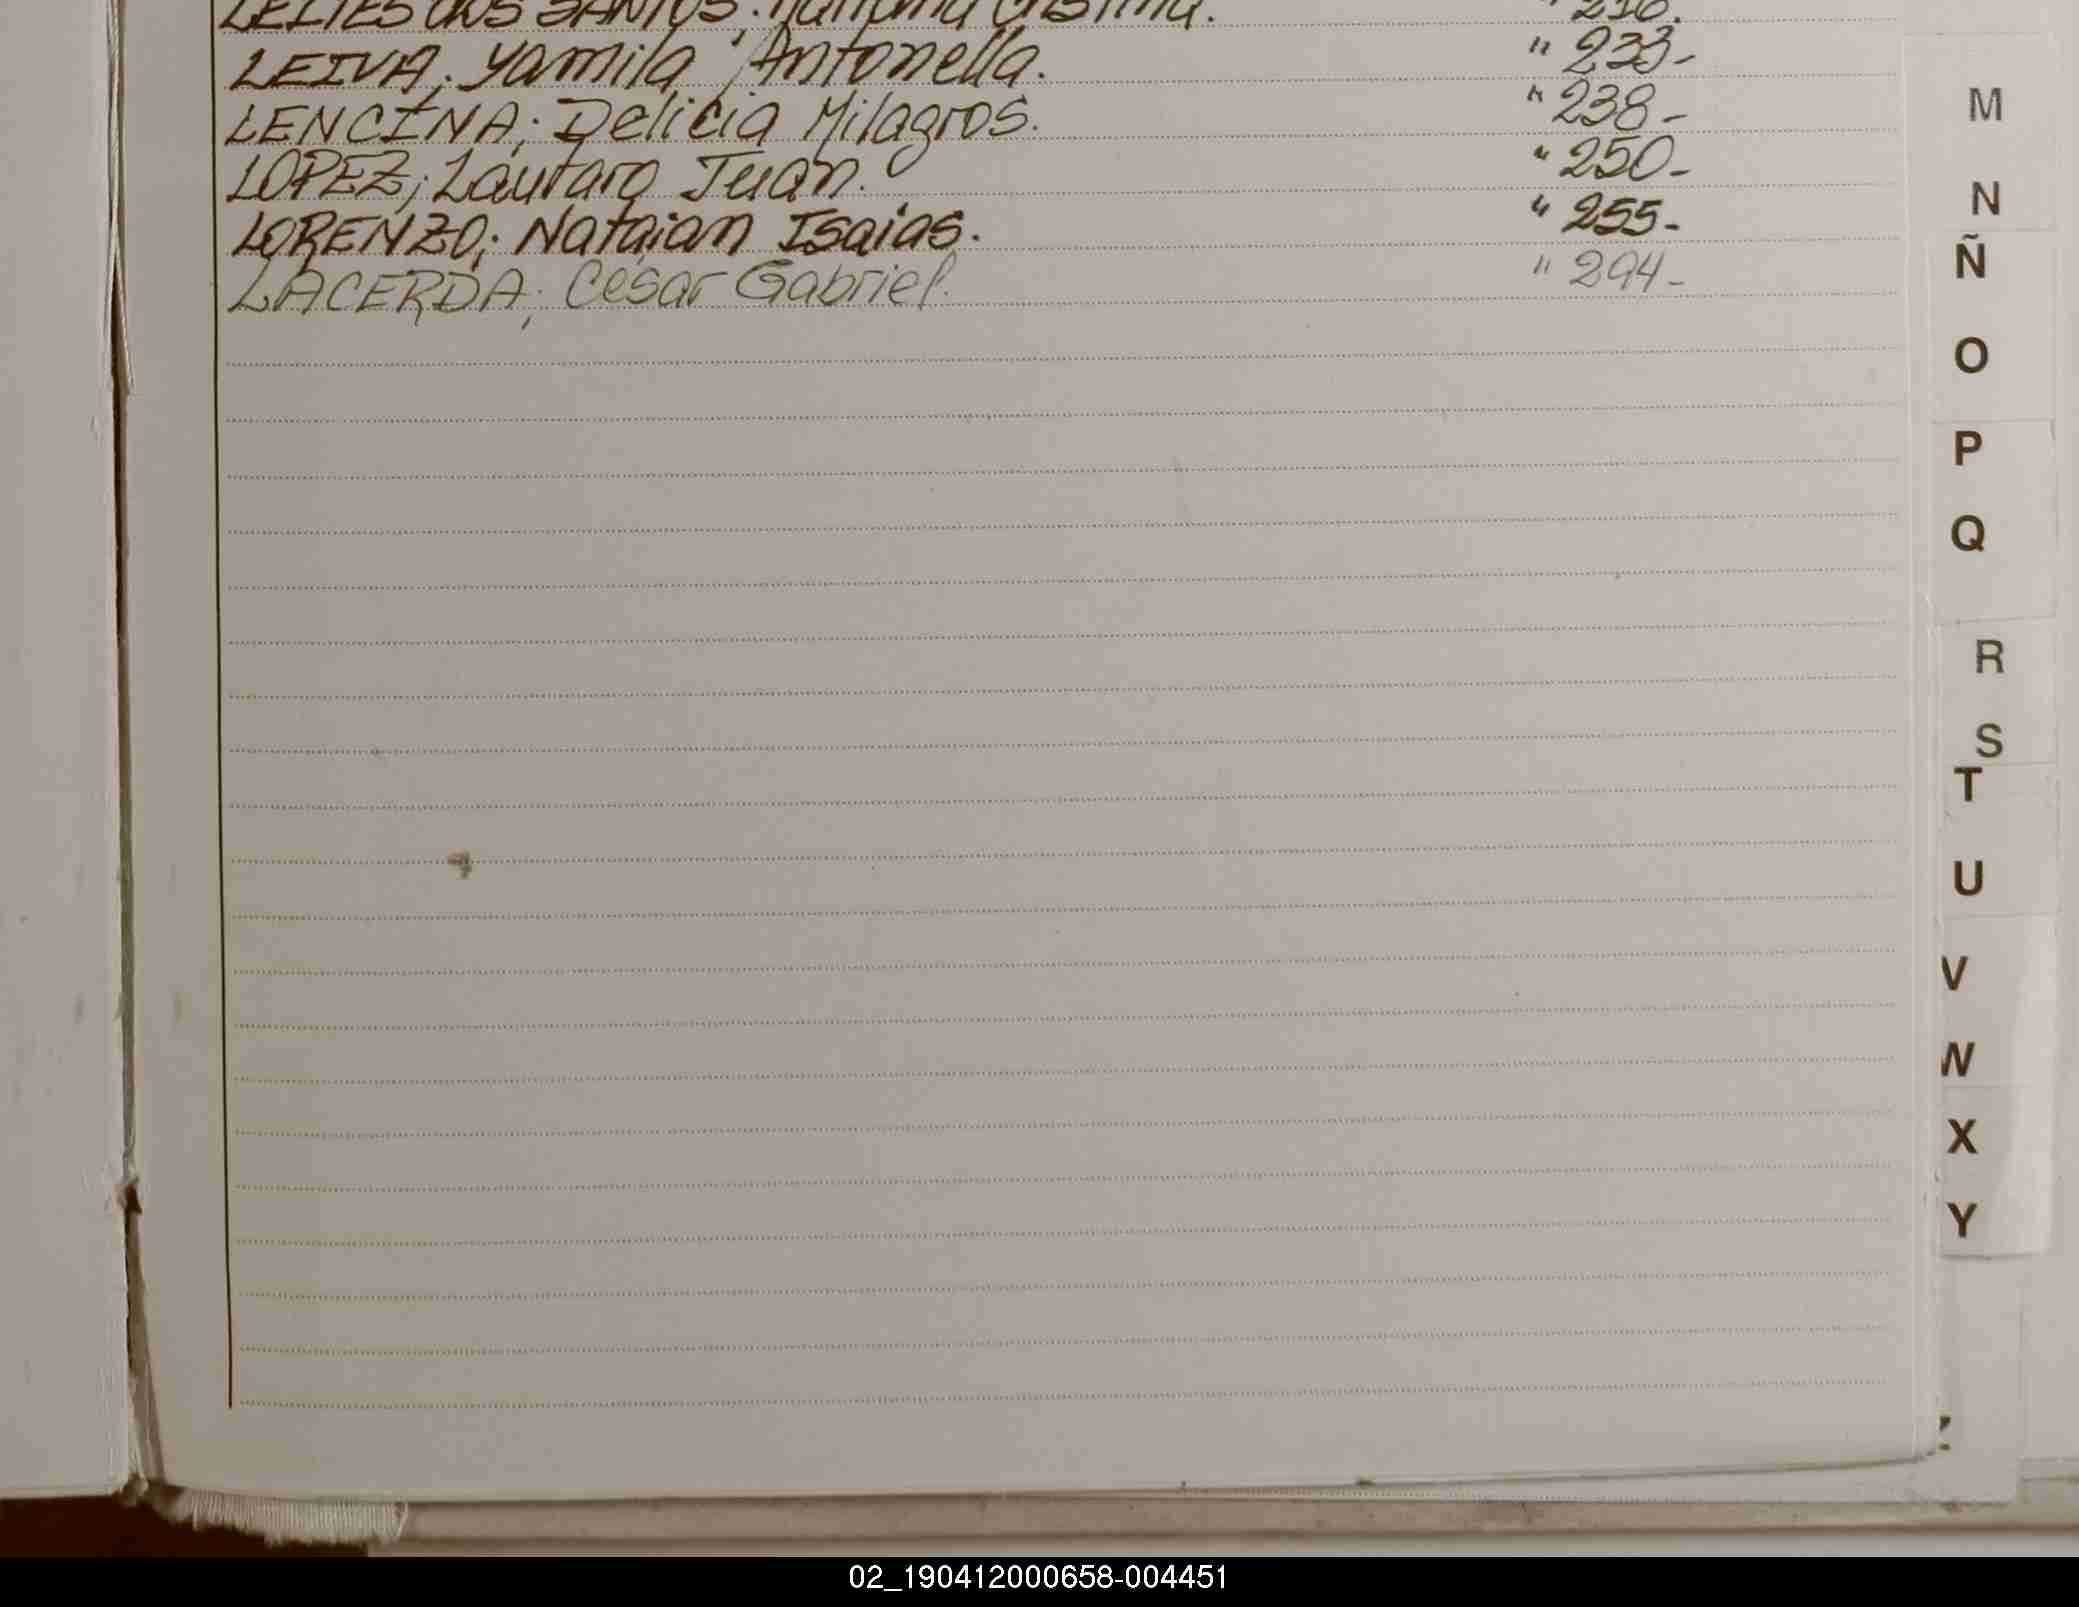 LEITES dos SANTOS; Cristina. " 216.
LEIVA; Yamila Antonella. " 233-
LENCINA; Delicia Milagros. " 238-
LOPEZ; Lautaro Juan. " 250-
LORENZO; Isaias. " 255-
LACERDA; César Gabriel. " 294-
M
N
Ñ
O
P
Q
R
S
T
U
V
W
X
Y
02_190412000658-004451